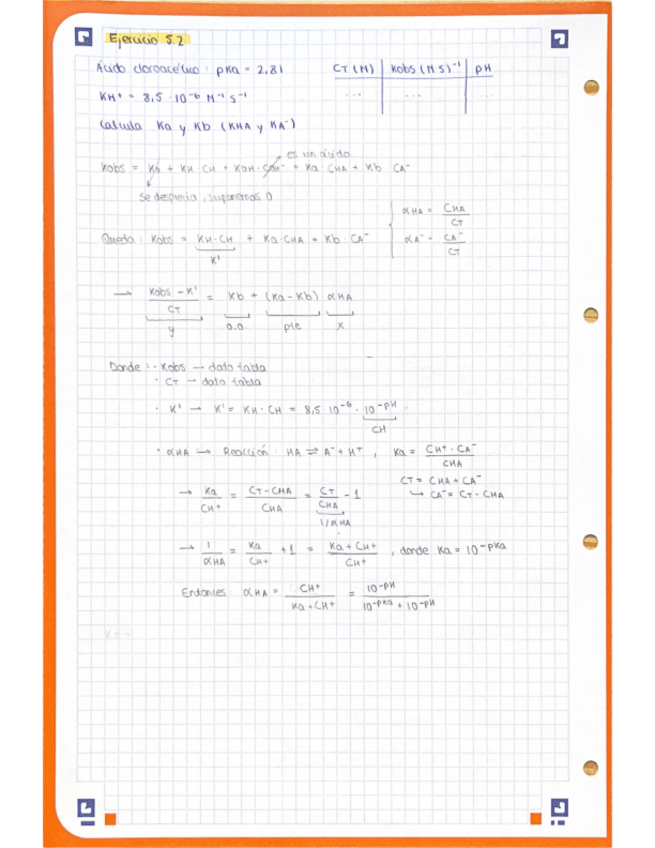 Ejercicio 5.2
Ácido cloroacético : pKa = 2,81 CT (M) Kobs (M S)⁻¹ pH
KH⁺ = 8,5 · 10⁻⁶ M⁻¹ S⁻¹ ... ... ...
Calcula Ka y Kb (KHA y KA⁻)
es un ácido
Kobs = K0 + KH · CH + KOH · COH⁻ + Ka · CHA + Kb · CA⁻
Se desprecia, suponemos 0
αHA = CHA / CT
Queda : Kobs = KH · CH + Ka · CHA + Kb · CA⁻
K'
αA⁻ = CA⁻ / CT
→ (Kobs - K') / CT = Kb + (Ka - Kb) αHA
y o.o pte x
Donde : · Kobs → dato tabla
· CT → dato tabla
· K' → K' = KH · CH = 8,5 · 10⁻⁶ · 10⁻pH
CH
· αHA → Reacción : HA ⇌ A⁻ + H⁺ , Ka = CH⁺ · CA⁻ / CHA
CT = CHA + CA⁻
↳ CA⁻ = CT - CHA
→ Ka / CH⁺ = (CT - CHA) / CHA = CT / CHA - 1
1/αHA
→ 1 / αHA = Ka / CH⁺ + 1 = (Ka + CH⁺) / CH⁺ , donde Ka = 10⁻pKa
Entonces αHA = CH⁺ / (Ka + CH⁺) = 10⁻pH / (10⁻pKa + 10⁻pH)